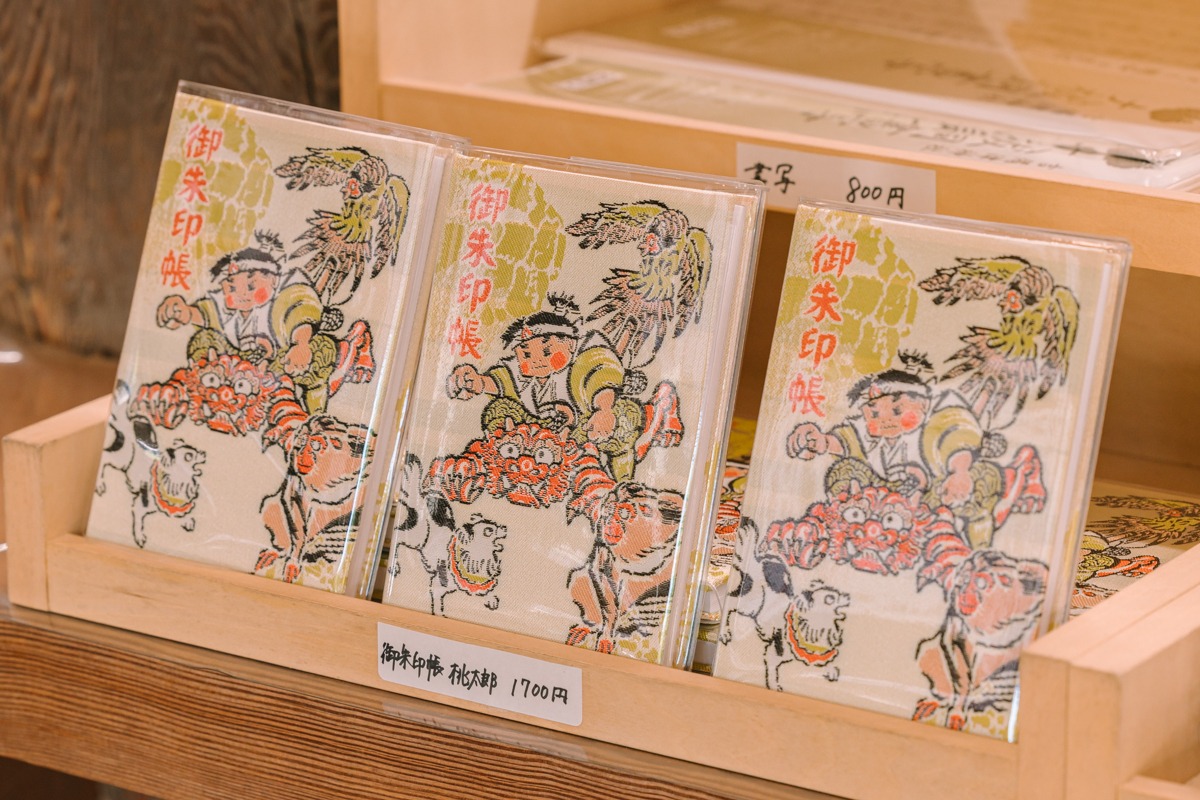 御朱印帳
御朱印帳
御朱印帳
書写 800円
御朱印帳 桃太郎 1700円